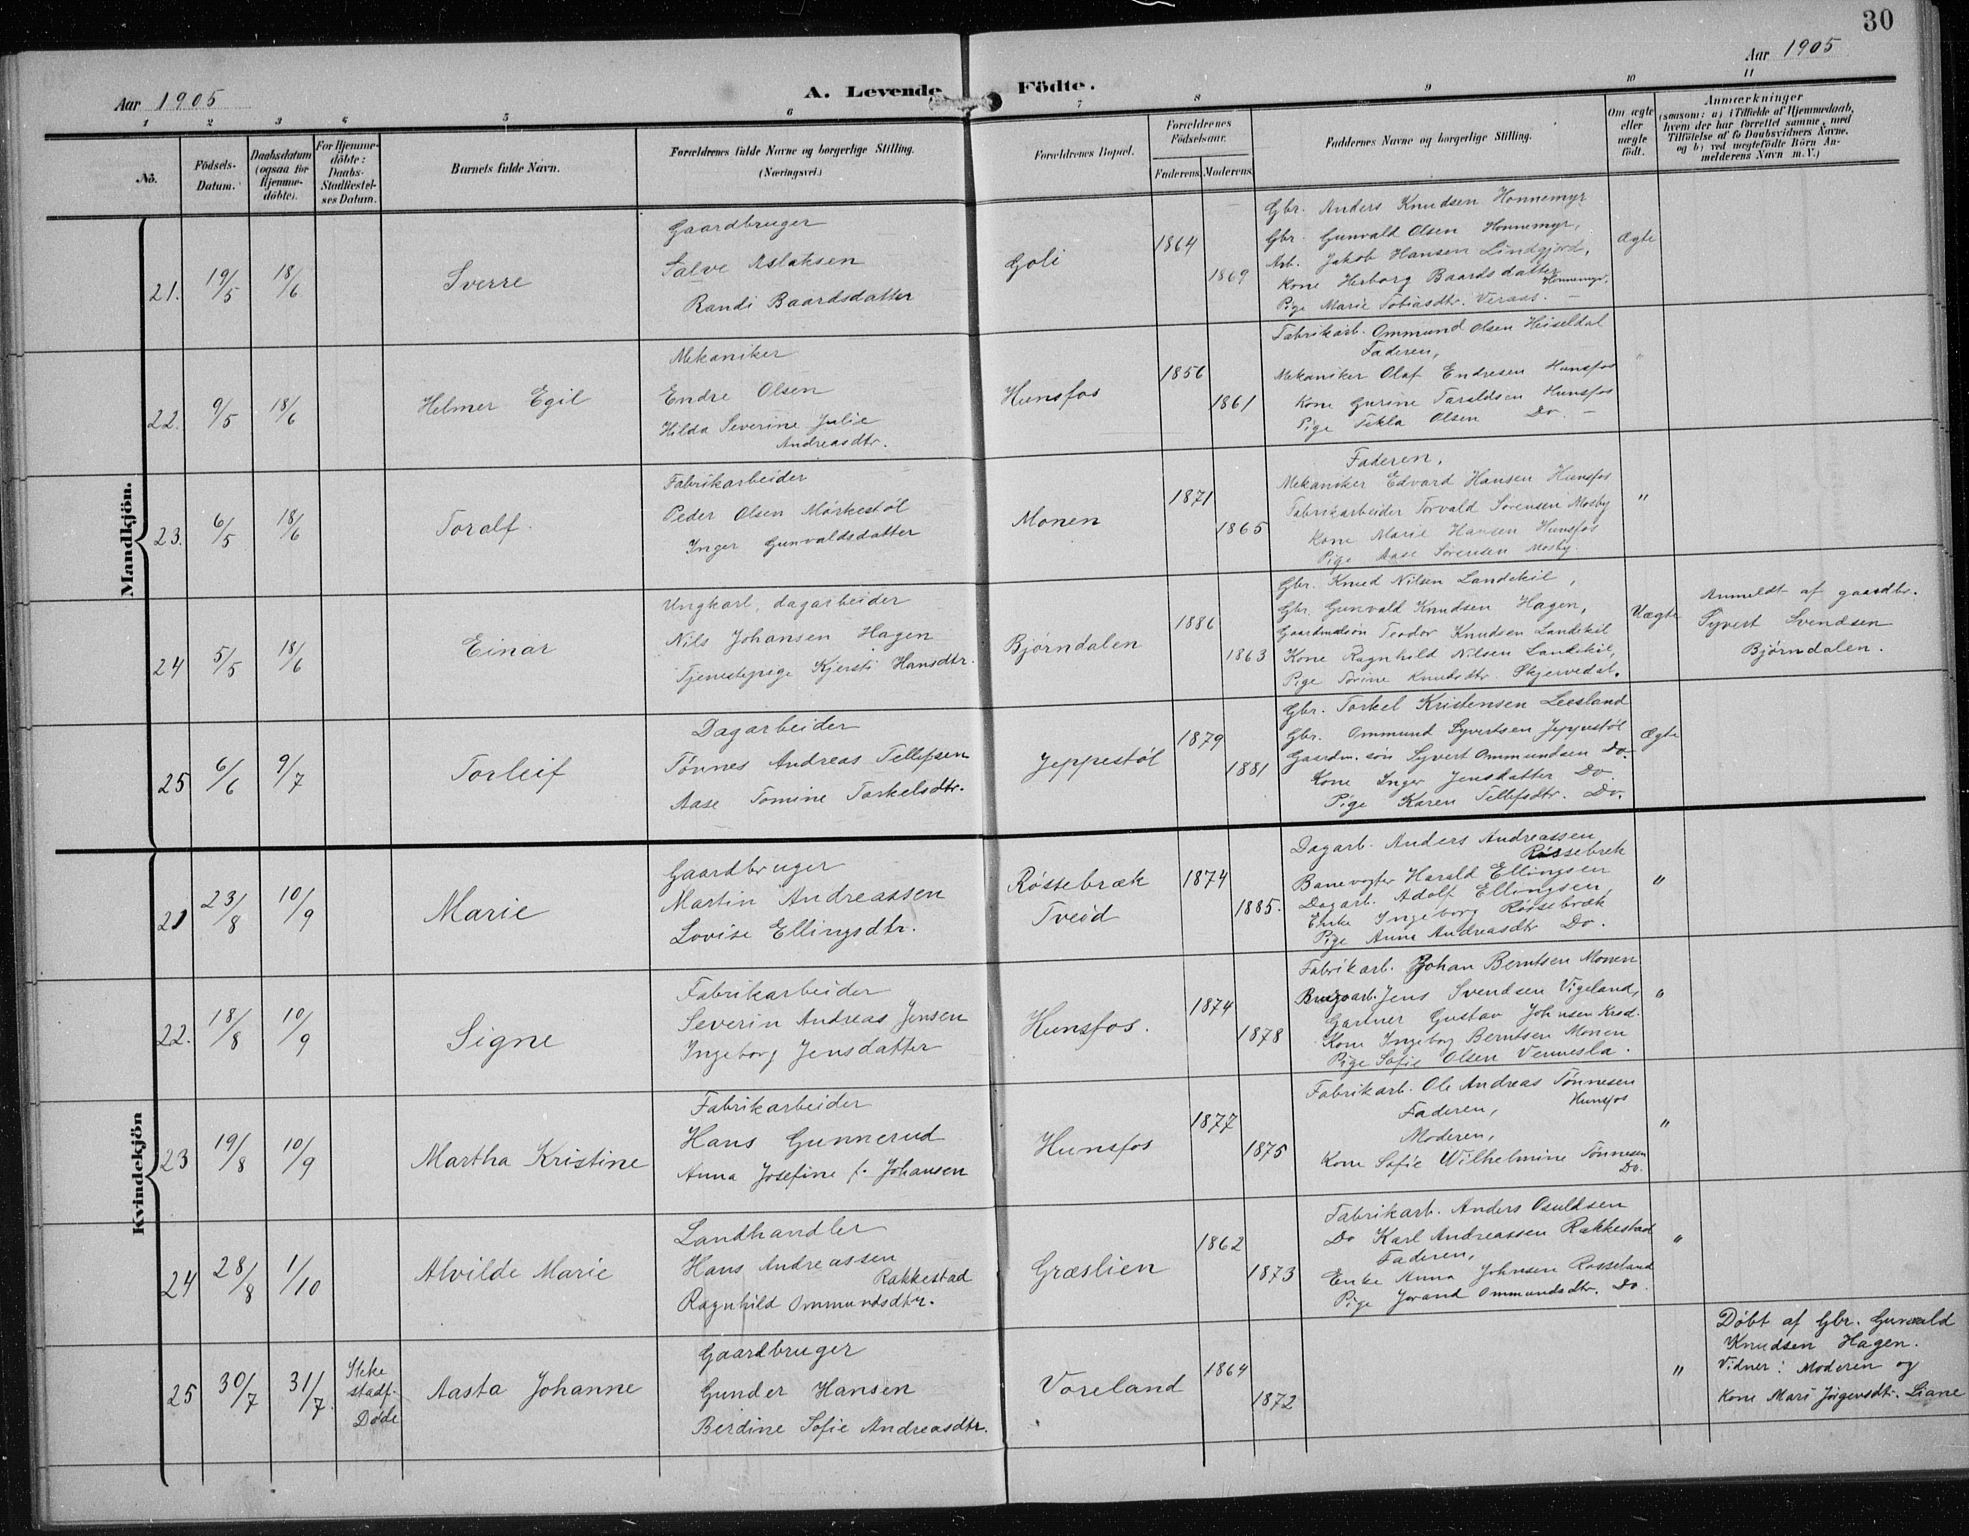 30
Aar 1905
Aar 1905
A. Levende Födte.
1 2 3 4 5 6 7 8 9 10 11
No.
Födsels-
Datum.
Daabsdatum
(ogsaa for
Hjemme-
döbte).
For Hjemme-
döbte:
Daabs-
Stadfæstel-
ses Datum.
Barnets fulde Navn.
Forældrenes fulde Navne og borgerlige Stilling.
(Næringsvei.)
Forældrenes Bopæl.
Forældrenes
Födselsaar.
Faderens. Moderens.
Faddernes Navne og borgerlige Stilling.
Om ægte
eller
uægte
födt.
Anmærkninger
(saasom: a) i Tilfælde af Hjemmedaab,
hvem der har forrettet samme, med
Tilföielse af to Daabsvidners Navne.
og b) ved uægtefödte Börn An-
melderens Navn m. V.)
Mandkjön.
21. 19/5 18/6 Sverre
Gaardbruger
Salve Aslaksen
Randi Baardsdatter
Goli 1864 1869
Gbr. Anders Knudsen Honnemyr
Gbr. Gunvald Olsen Honnemyr,
Arb. Jakob Hansen Lindgjord,
Kone Herborg Baardsdatter Honnemyr,
Pige Marie Tobiasdtr. Veraas.
Ægte
22. 9/5 18/6 Helmer Egil
Mekaniker
Endre Olsen
Hilda Severine Julie
Andreasdtr.
Hunsfos 1856 1861
Fabrikarb. Ommund Olsen Heiseldal
Faderen,
Mekaniker Olaf Endresen Hunsfos
Kone Gurine Taraldsen Hunsfos
Pige Tekla Olsen Do. –
"
23. 6/5 18/6 Toralf.
Fabrikarbeider
Peder Olsen Mörkestöl
Inger Gunvaldsdatter
Monen 1871 1865
Faderen,
Mekaniker Edvard Hansen Hunsfos
Fabrikarbeider Torvald Sørensen Mosby
Kone Marie Hansen Hunsfos
Pige Aase Sørensen Mosby
"
24 5/5 18/6 Einar
Ungkarl, dagarbeider
Nils Johansen Hagen
Tjenestepige Kjersti Hansdtr.
Bjørndalen 1886 1863
Gbr. Knud Nilsen Landekil,
Gbr. Gunvald Knudsen Hagen,
Gaardmdsön Teodor Knudsen Landekil
Kone Ragnhild Nilsen Landekil,
Pige Torine Knudsdtr. Skjervedal.
Uægte
Anmeldt af gaardbr.
Syvert Svendsen
Bjørndalen.
25 6/6 9/7 Torleif
Dagarbeider
Tønnes Andreas Tellefsen
Aase Tomine Torkelsdtr.
Jeppestöl 1879 1881
Gbr. Torkel Kristensen Leesland
Gbr. Ommund Syvertsen Jeppestöl
Gaardm. sön Syvert Ommundsen Do
Kone Inger Jensdatter Do.
Pige Karen Tellefsdtr. Do.
Ægte
Kvindekjön
21 23/8 10/9 Marie
Gaardbruger
Martin Andreassen
Lovise Ellingsdtr.
Røssebræk
Tveid
1874 1885.
Dagarb. Anders Andreassen
Røssebrek
Banevogter Harald Ellingsen
Dagarb. Adolf Ellingsen,
Enke Ingeborg Røssebræk
Pige Anna Andreasdtr Do.
"
22. 18/8 10/9 Signe
Fabrikarbeider
Severin Andreas Jensen
Ingeborg Jensdatter
Hunsfos. 1874 1878
Fabrikarb. Johan Berntsen Monen
Brugsarb. Jens Svendsen Vigeland,
Garver Gustav Johnsen Krsd.
Kone Ingeborg Berntsen Monen
Pige Sofie Olsen Vennesla.
"
23 19/8 10/9 Martha Kristine
Fabrikarbeider
Hans Gunnerud
Anna Josefine f. Johansen
Hunsfos 1877 1875
Fabrikarb. Ole Andreas Tønnesen
Hunsfos
Faderen,
Moderen,
Kone Sofie Wilhelmine Tønnesen
Do.
"
24 28/8 1/10 Alvilde Marie
Landhandler
Hans Andreassen
Rakkestad
Ragnhild Ommundsdtr.
Græslien 1862 1873
Fabrikarb. Anders Osuldsen
Do Karl Andreassen Rakkestad
Faderen,
Enke Anna Johnsen Rosseland
Pige Jorand Ommundsdtr. Do.
"
25 30/7 31/7. Ikke
stadf.
Døde
Aasta Johanne
Gaardbruger
Gunder Hansen
Berdine Sofie Andreasdtr.
Voreland 1864 1872
"
Döbt af Gbr. Gunvald
Knudsen Hagen.
Vidner: Moderen og
Kone Mari Jörgensdtr. Liane